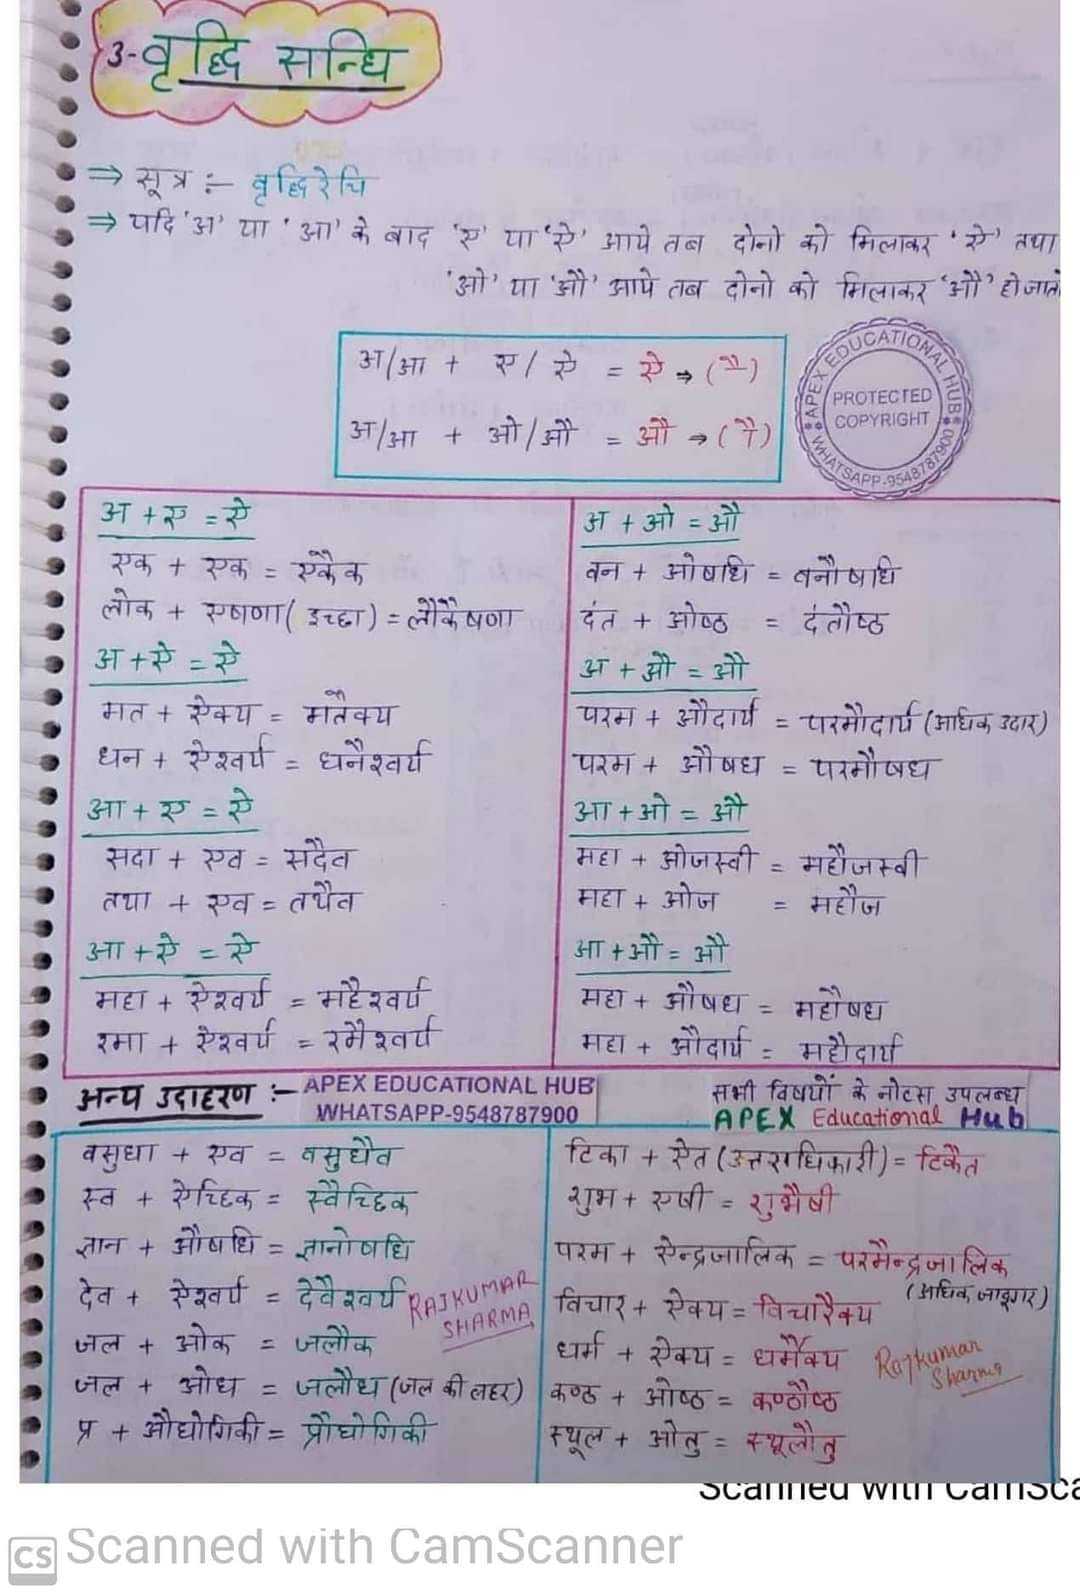 3- वृद्धि सन्धि
⇒ सूत्र :- वृद्धिरेचि
⇒ यदि 'अ' या 'आ' के बाद 'ए' या 'ऐ' आये तब दोनो को मिलाकर 'ऐ' तथा
'ओ' या 'औ' आये तब दोनो को मिलाकर 'औ' हो जाते
अ/आ + ए/ऐ = ऐ → (ै)
अ/आ + ओ/औ = औ → (ौ)
APEX EDUCATIONAL HUB
PROTECTED
COPYRIGHT
WHATSAPP-9548787900
अ + ए = ऐ
एक + एक = एकैक
लोक + एषणा (इच्छा) = लौकैषणा
अ + ऐ = ऐ
मत + ऐक्य = मतैक्य
धन + ऐश्वर्य = धनैश्वर्य
आ + ए = ऐ
सदा + एव = सदैव
तथा + एव = तथैव
आ + ऐ = ऐ
महा + ऐश्वर्य = महैश्वर्य
रमा + ऐश्वर्य = रमैश्वर्य
अ + ओ = औ
वन + ओषधि = वनौषधि
दंत + ओष्ठ = दंतौष्ठ
अ + औ = औ
परम + औदार्य = परमौदार्य (अधिक उदार)
परम + औषध = परमौषध
आ + ओ = औ
महा + ओजस्वी = महौजस्वी
महा + ओज = महौज
आ + औ = औ
महा + औषध = महौषध
महा + औदार्य = महौदार्य
अन्य उदाहरण :-
APEX EDUCATIONAL HUB
WHATSAPP-9548787900
सभी विषयों के नोटस उपलब्ध
APEX Educational Hub
वसुधा + एव = वसुधैव
स्व + ऐच्छिक = स्वैच्छिक
ज्ञान + औषधि = ज्ञानोषधि
देव + ऐश्वर्य = देवैश्वर्य
RAJKUMAR
SHARMA
जल + ओक = जलौक
जल + ओध = जलौध (जल की लहर)
प्र + औद्योगिकी = प्रौद्योगिकी
टिका + ऐत (उत्तराधिकारी) = टिकैत
शुभ + एषी = शुभैषी
परम + ऐन्द्रजालिक = परमैन्द्रजालिक
(अधिक जादूगार)
विचार + ऐक्य = विचारैक्य
धर्म + ऐक्य = धर्मैक्य
Rajkumar
Sharma
कण्ठ + ओष्ठ = कण्ठौष्ठ
स्थूल + ओतु = स्थूलौतु
Scanned with CamSca
CS Scanned with CamScanner